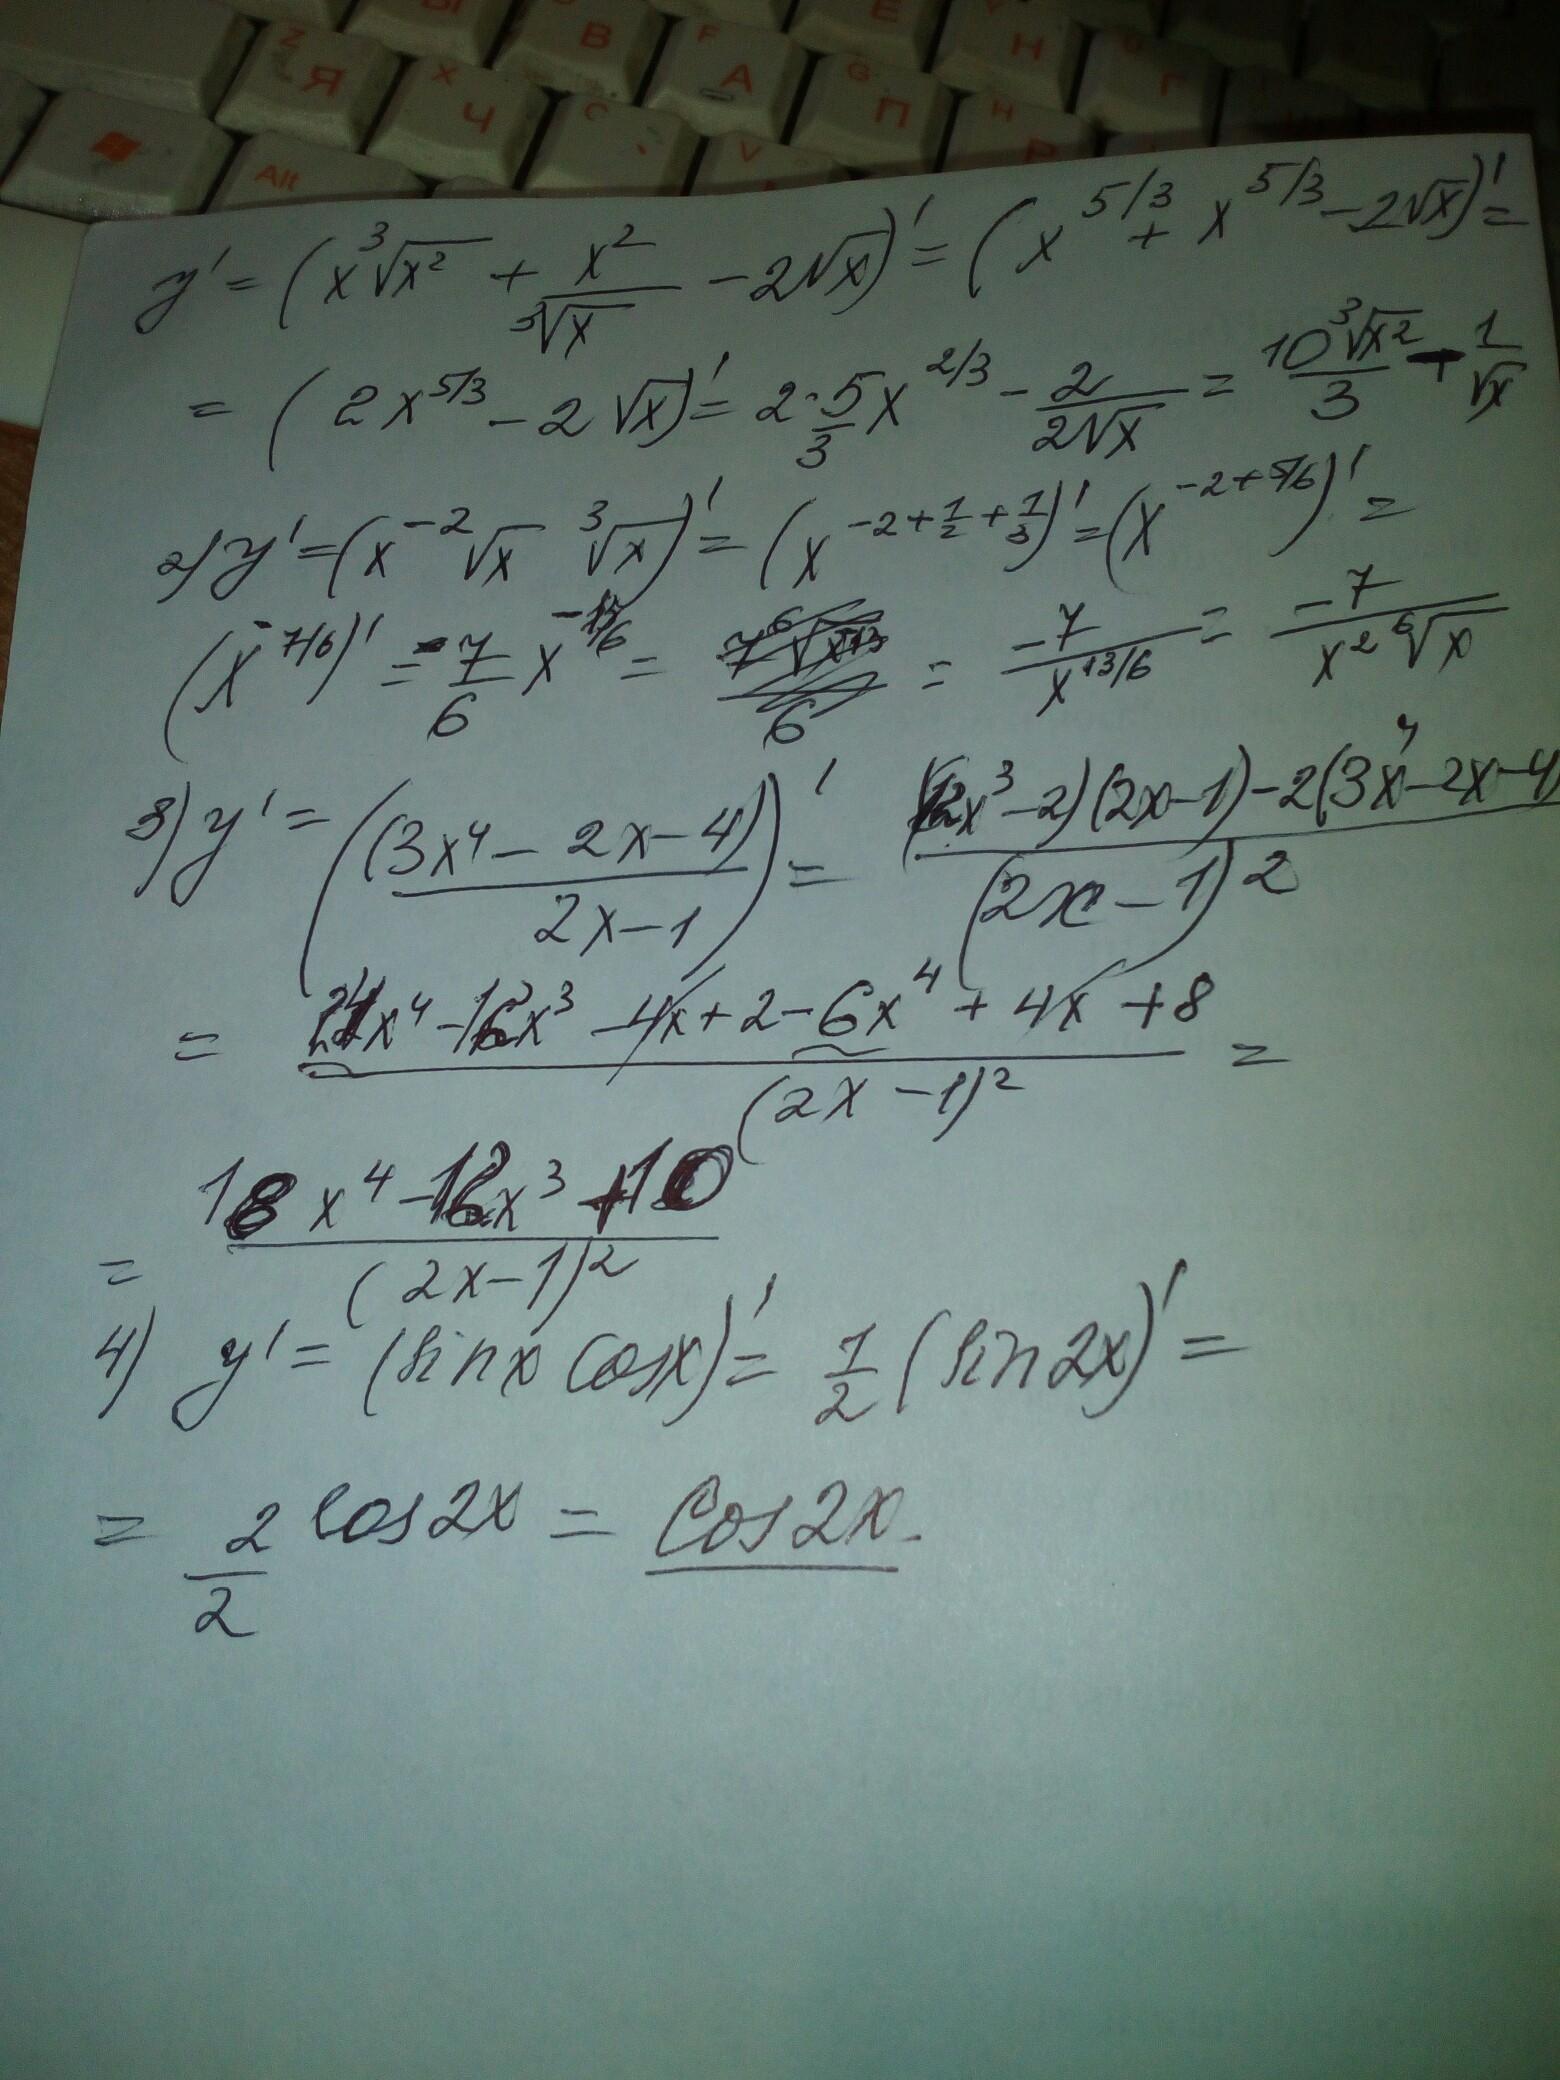 Z Я
X Ч
C
V
F А
B
G П
H Н
Е
Г
Alt
y' = (x∛x² + x²/∛x - 2√x)' = (x^5/3 + x^5/3 - 2√x)' =
= (2x^5/3 - 2√x)' = 2·5/3 x^2/3 - 2/2√x = 10∛x²/3 - 1/√x
2) y' = (x^-2 √x ∛x)' = (x^-2+1/2+1/3)' = (x^-2+5/6)' =
(x^-7/6)' = -7/6 x^-13/6 = = -7/x^13/6 = -7/x² ⁶√x
3) y' = ((3x⁴ - 2x - 4)/2x-1)' = (12x³-2)(2x-1)-2(3x⁴-2x-4)/(2x-1)²
= 24x⁴ - 12x³ - 4x + 2 - 6x⁴ + 4x + 8/(2x-1)² =
= 18x⁴ - 12x³ + 10/(2x-1)²
4) y' = (sinx cosx)' = 1/2 (sin2x)' =
= 2/2 cos2x = cos2x.